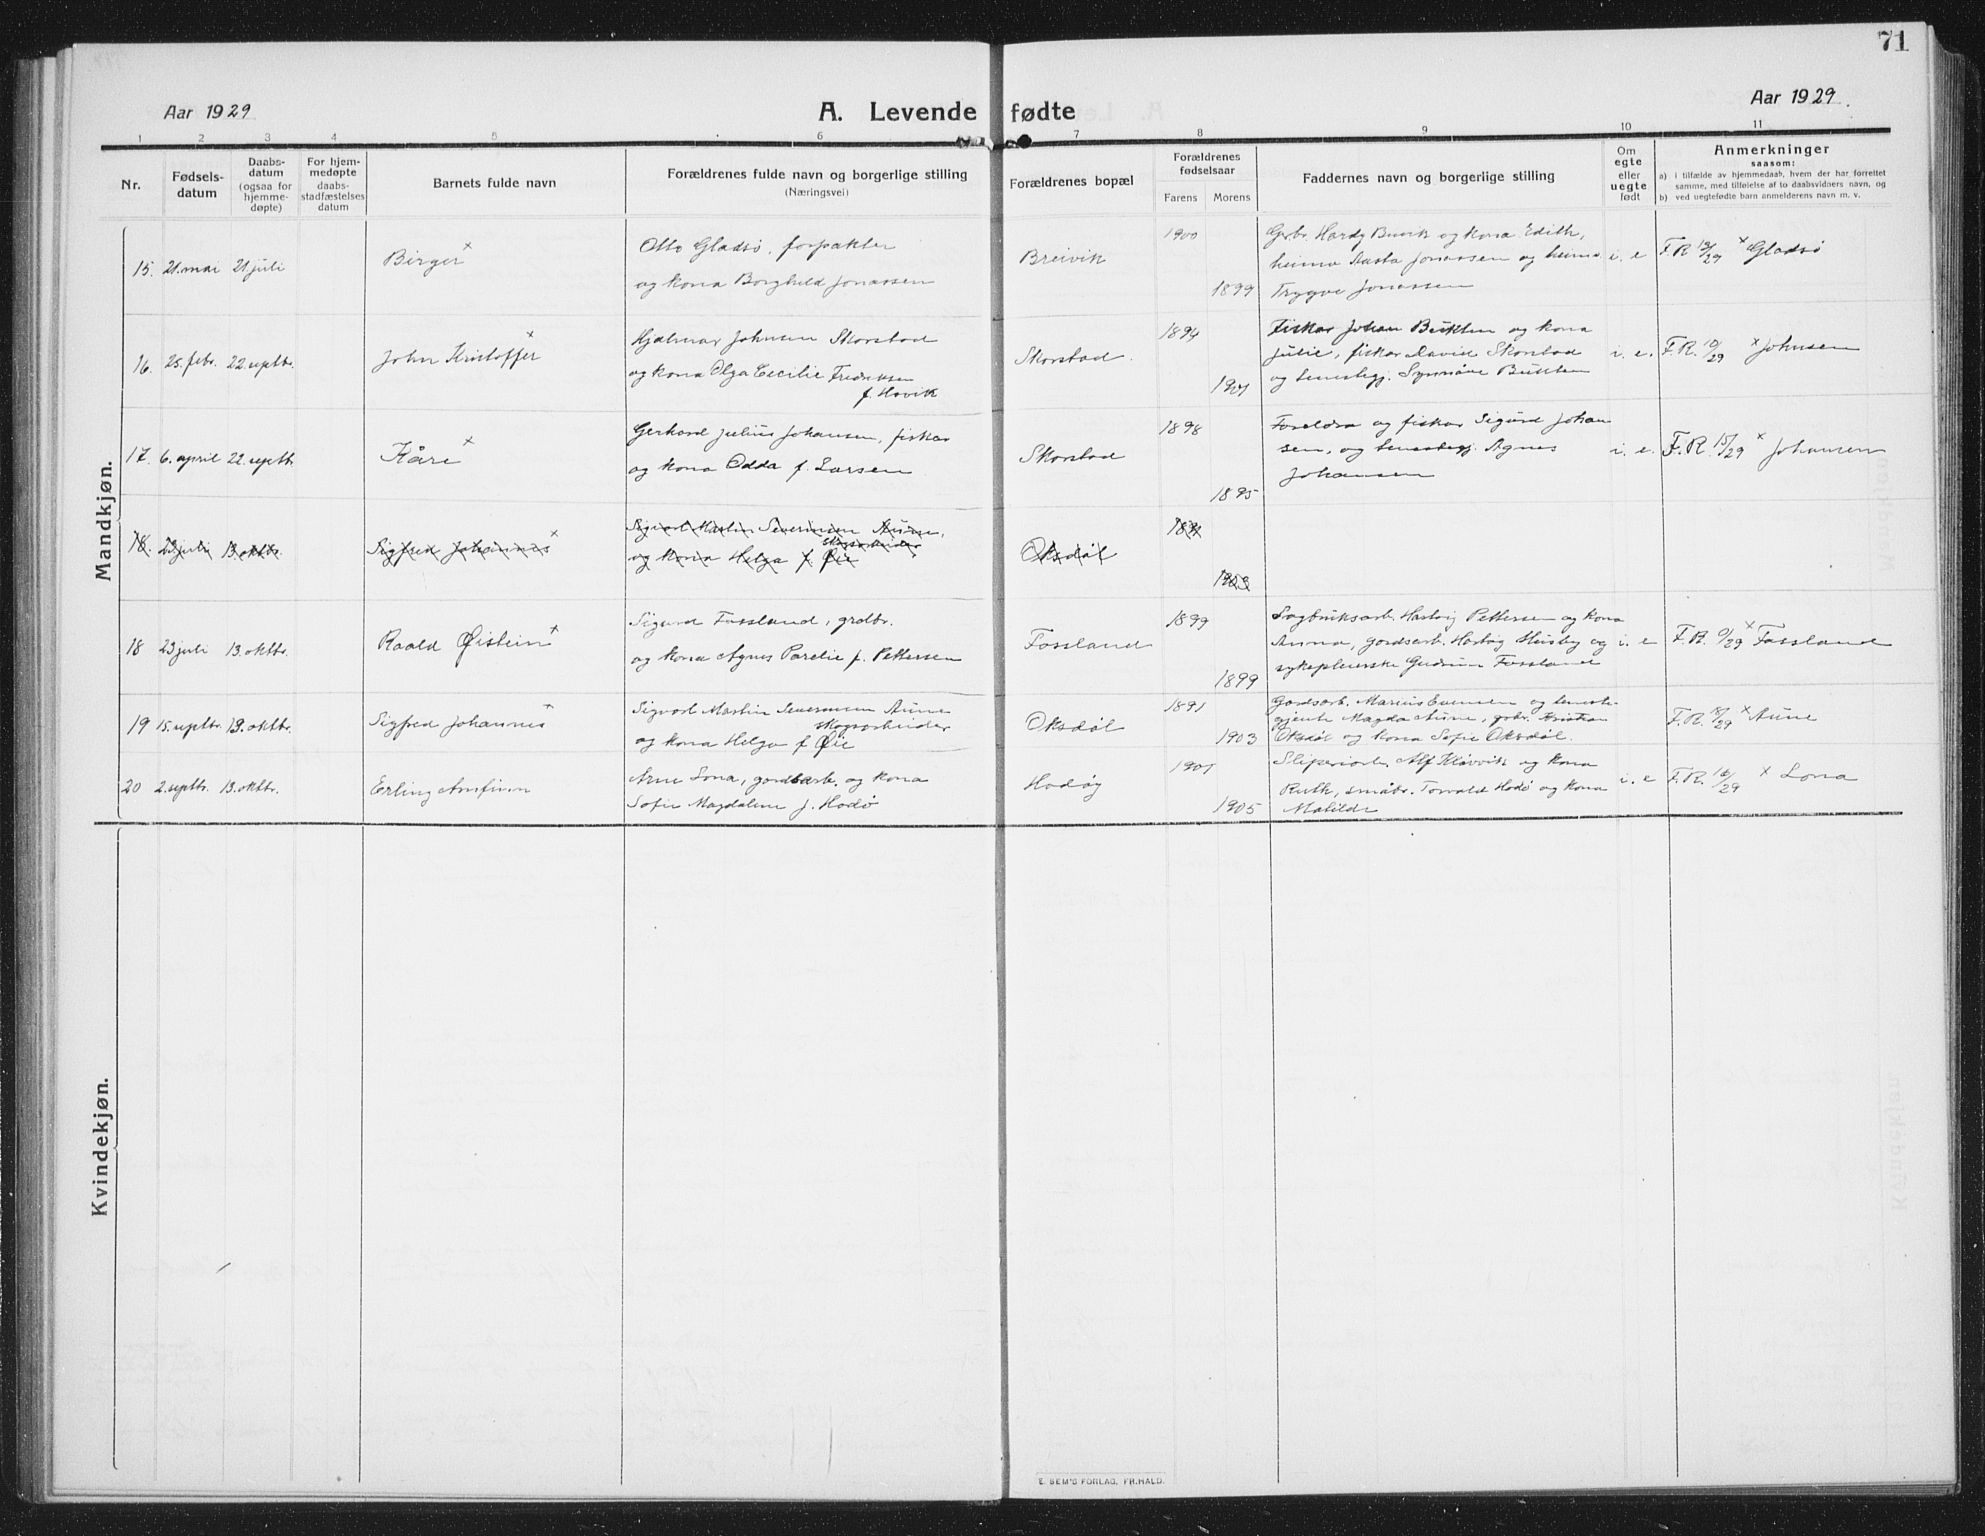 71
Aar 1929
A. Levende fødte
Aar 1929.
1 2 3 4 5 6 7 8 9 10 11
Nr.
Fødsels-
datum
Daabs-
datum
(ogsaa for
hjemme-
døpte)
For hjem-
medøpte
daabs-
stadfæstelses
datum
Barnets fulde navn
Forældrenes fulde navn og borgerlige stilling
(Næringsvei)
Forældrenes bopæl
Forældrenes
fødselsaar
Farens Morens
Faddernes navn og borgerlige stilling
Om
egte
eller
uegte
født
Anmerkninger
saasom:
a) i tilfælde av hjemmedaab, hvem der har forrettet
samme, med tilføielse af to daabsvidners navn, og
b) ved uegtefødte barn anmelderens navn m. v.
Mandkjøn.
15. 21. mai 21. juli Birger x
Otto Gladsø, forpakter
og kona Borghild Jonassen
Breivik
1900
1899
Grbr. Hardy og kona Edith,
heime Aasta Jonassen og heime
Trygve Jonassen
i. e F.R. /29 x Gladsø
16. 25. febr. 22. septbr. John Kristoffer x
Hjalmar Johnsen Skorstad
og kona Olga Cecilie Fredriksen
f. Hovik
Skorstad.
1894
1901
Fiskar Johan og kona
Julie, fiskar David Skorstad
og tenestegj. Synnöve
i. e. F.R. /29 x Johnsen
17. 6. april 22. septbr. Kåre x
Gerhard Julius Johansen, fiskar
og kona Odda f. Larsen
Skorstad
1898
1895
Foreldra og fiskar Sigurd Johan
sen, og tenestegj. Agnes
Johansen
i. e. F.R. 15/29 x Johansen
18. 23 juli 13. oktbr. Sigfred Johannes x
Sigvart Martin Severinsen Aune,
Skogsarbeider
og kona Helga f. Øie
Oksdøl
1903
18 23 juli 13. oktbr. Roald Øistein x
Sigurd Fossland, grdbr.
og kona Agnes Parelie f. Pettersen
Fossland
1899
1899
Sagbruksarb. Hartvig Pettersen og kona
Anna, gardsarb. Hartvig Husby og
sykepleierske Gudrun Fossland
i. e F.R. /29 x Fossland
19 15. septbr. 13. oktbr. Sigfred Johannes x
Sigvart Martin Severinsen Aune
Skogsarbeider
og kona Helga f Øie
Oksdøl
1891
1903
Gardsarb. Marius Evensen og teneste-
gjente Magda Aune, grbr. Kristian
Oksdøl og kona Sofie Oksdøl.
F.R. /29 x Aune
20 2. septbr. 13. oktbr. Erling Arnfinn
Arne Lona, gardsarb. og kona
Sofie Magdalene f. Hodø
Hodøy
1901
1905
Sliperiarb. Alf Kløvvik og kona
Ruth, småbr. Torvald Hodø og kona
Matilde
i. e F.R. /29 x Lona
Kvindekjøn.
E. SEM'S FORLAG, FR.HALD.